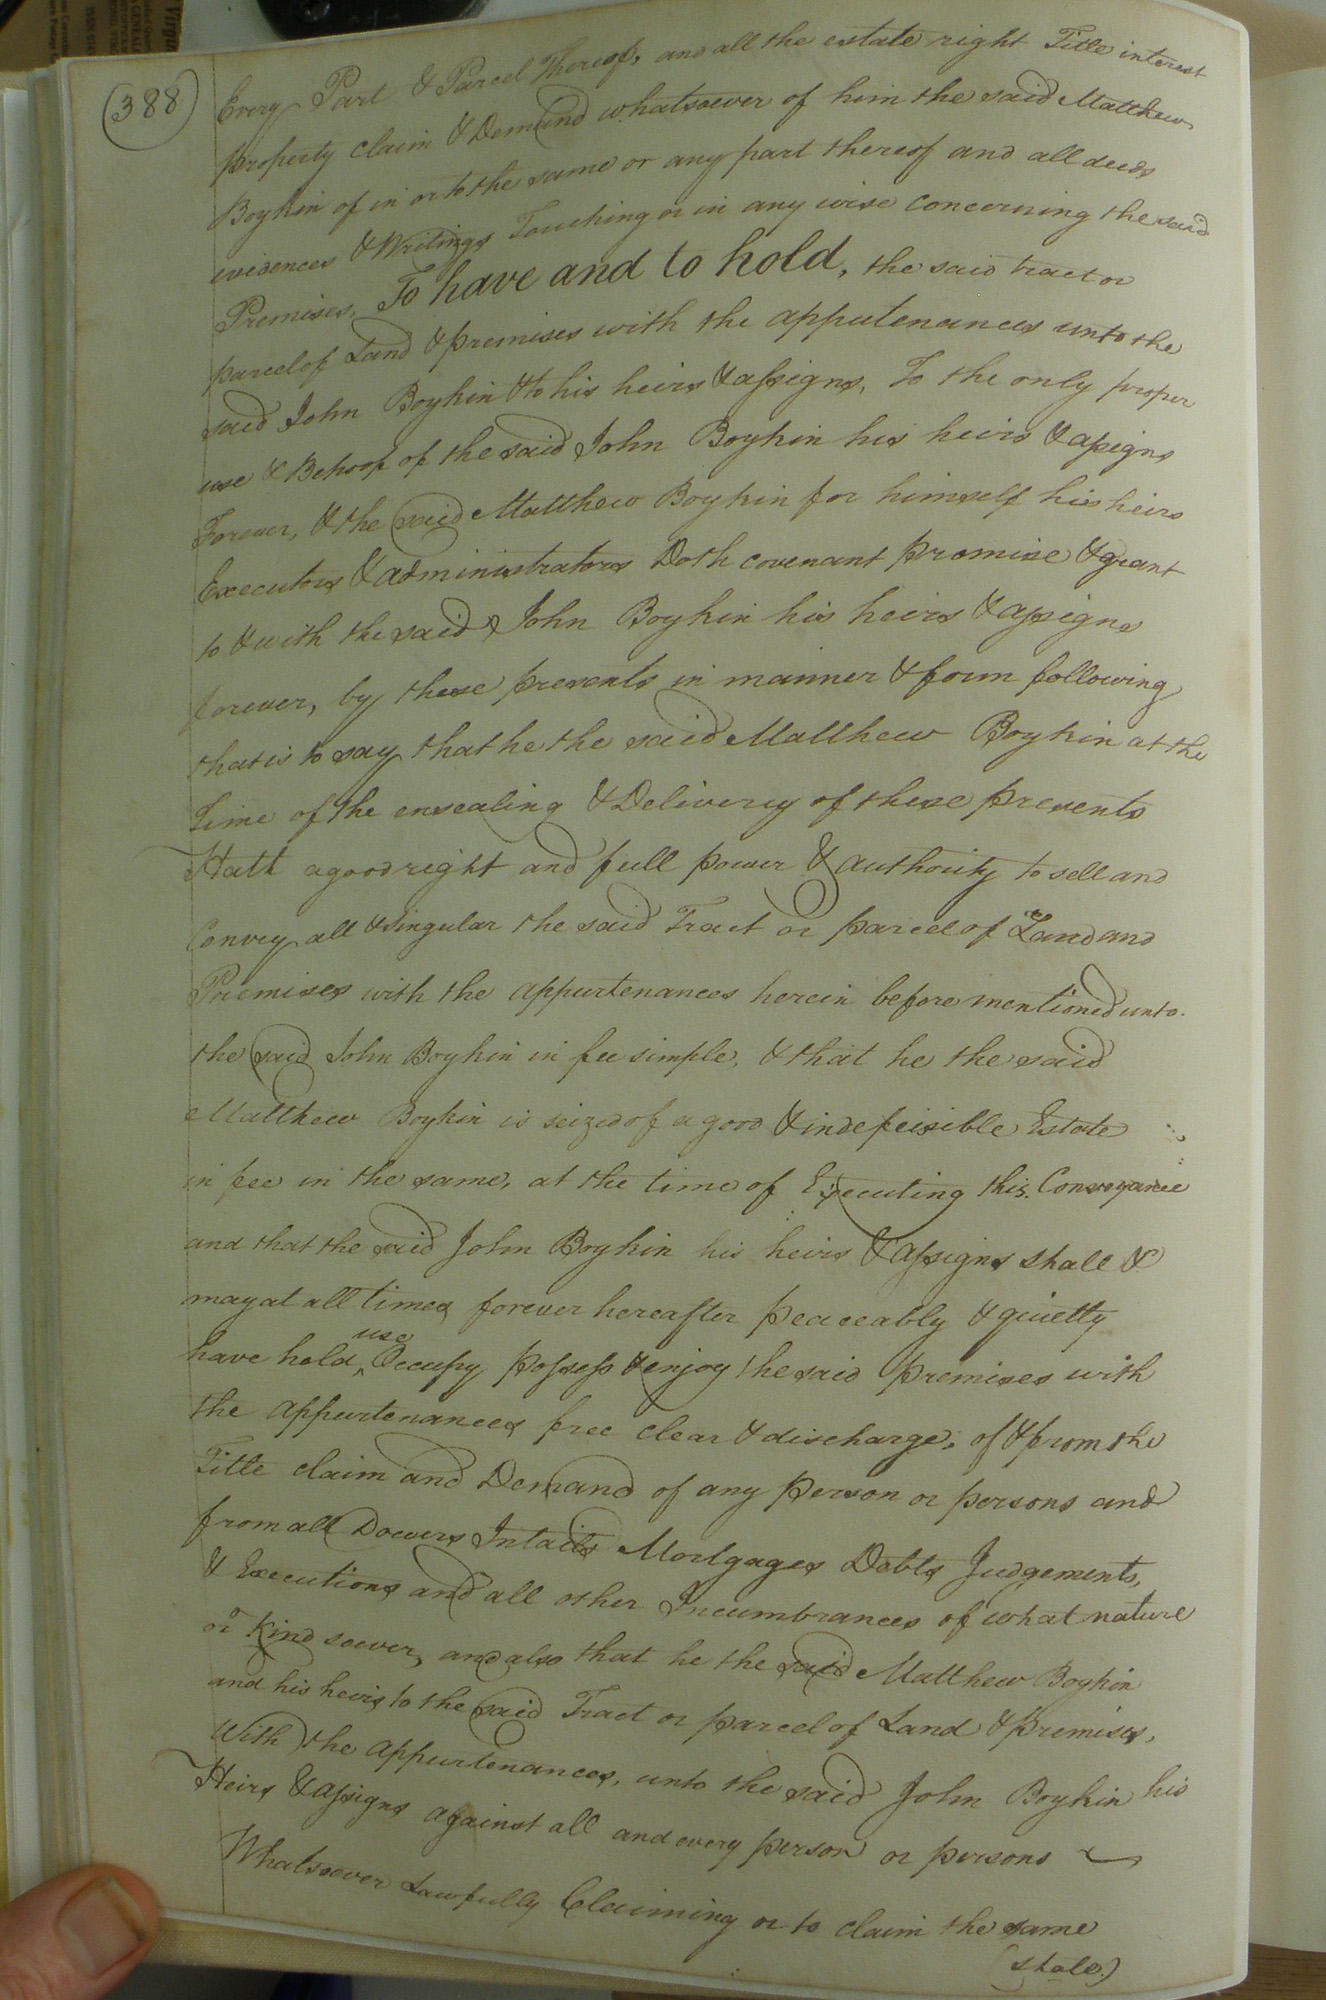 (388)
Every Part & Parcel Thereof, and all the estate right Title interest
property claim & Demand whatsoever of him the said Matthew
Boykin of in or to the same or any part thereof and all deeds
evidences & Writings Touching or in any wise concerning the said
Premises, To have and to hold, the said tract or
parcel of Land & premises with the appurtenances unto the
said John Boykin & to his heirs & assigns, To the only proper
use & Behoof of the said John Boykin his heirs & assigns
Forever, & the said Matthew Boykin for himself his heirs
Executors & administrators Doth covenant promise & grant
to & with the said John Boykin his heirs & assigns
forever, by these presents in manner & form following
that is to say that he the said Matthew Boykin at the
time of the ensealing & Delivery of these presents
Hath a good right and full power & authority to sell and
Convey all & singular the said Tract or parcel of Land and
Premises with the appurtenances herein before mentioned unto
the said John Boykin in fee simple, & that he the said
Matthew Boykin is seized of a good & indefeisible Estate
in fee in the same, at the time of Executing this Conveyance
and that the said John Boykin his heirs & Assigns shall &
may at all times forever hereafter peaceably & quietly
have hold, use Occupy possess & enjoy the said premises with
the appurtenances free clear & discharge, of & from the
Title claim and Demand of any person or persons and
from all Dowers Intails Mortgages Debts Judgements,
& Executions and all other Incumbrances of what nature
or kind soever, and also that he the said Matthew Boykin
and his heirs to the said Tract or parcel of Land & premises,
With the appurtenances, unto the said John Boykin his
Heirs & assigns against all and every person or persons
Whatsoever Lawfully Claiming or to claim the same
(shall)